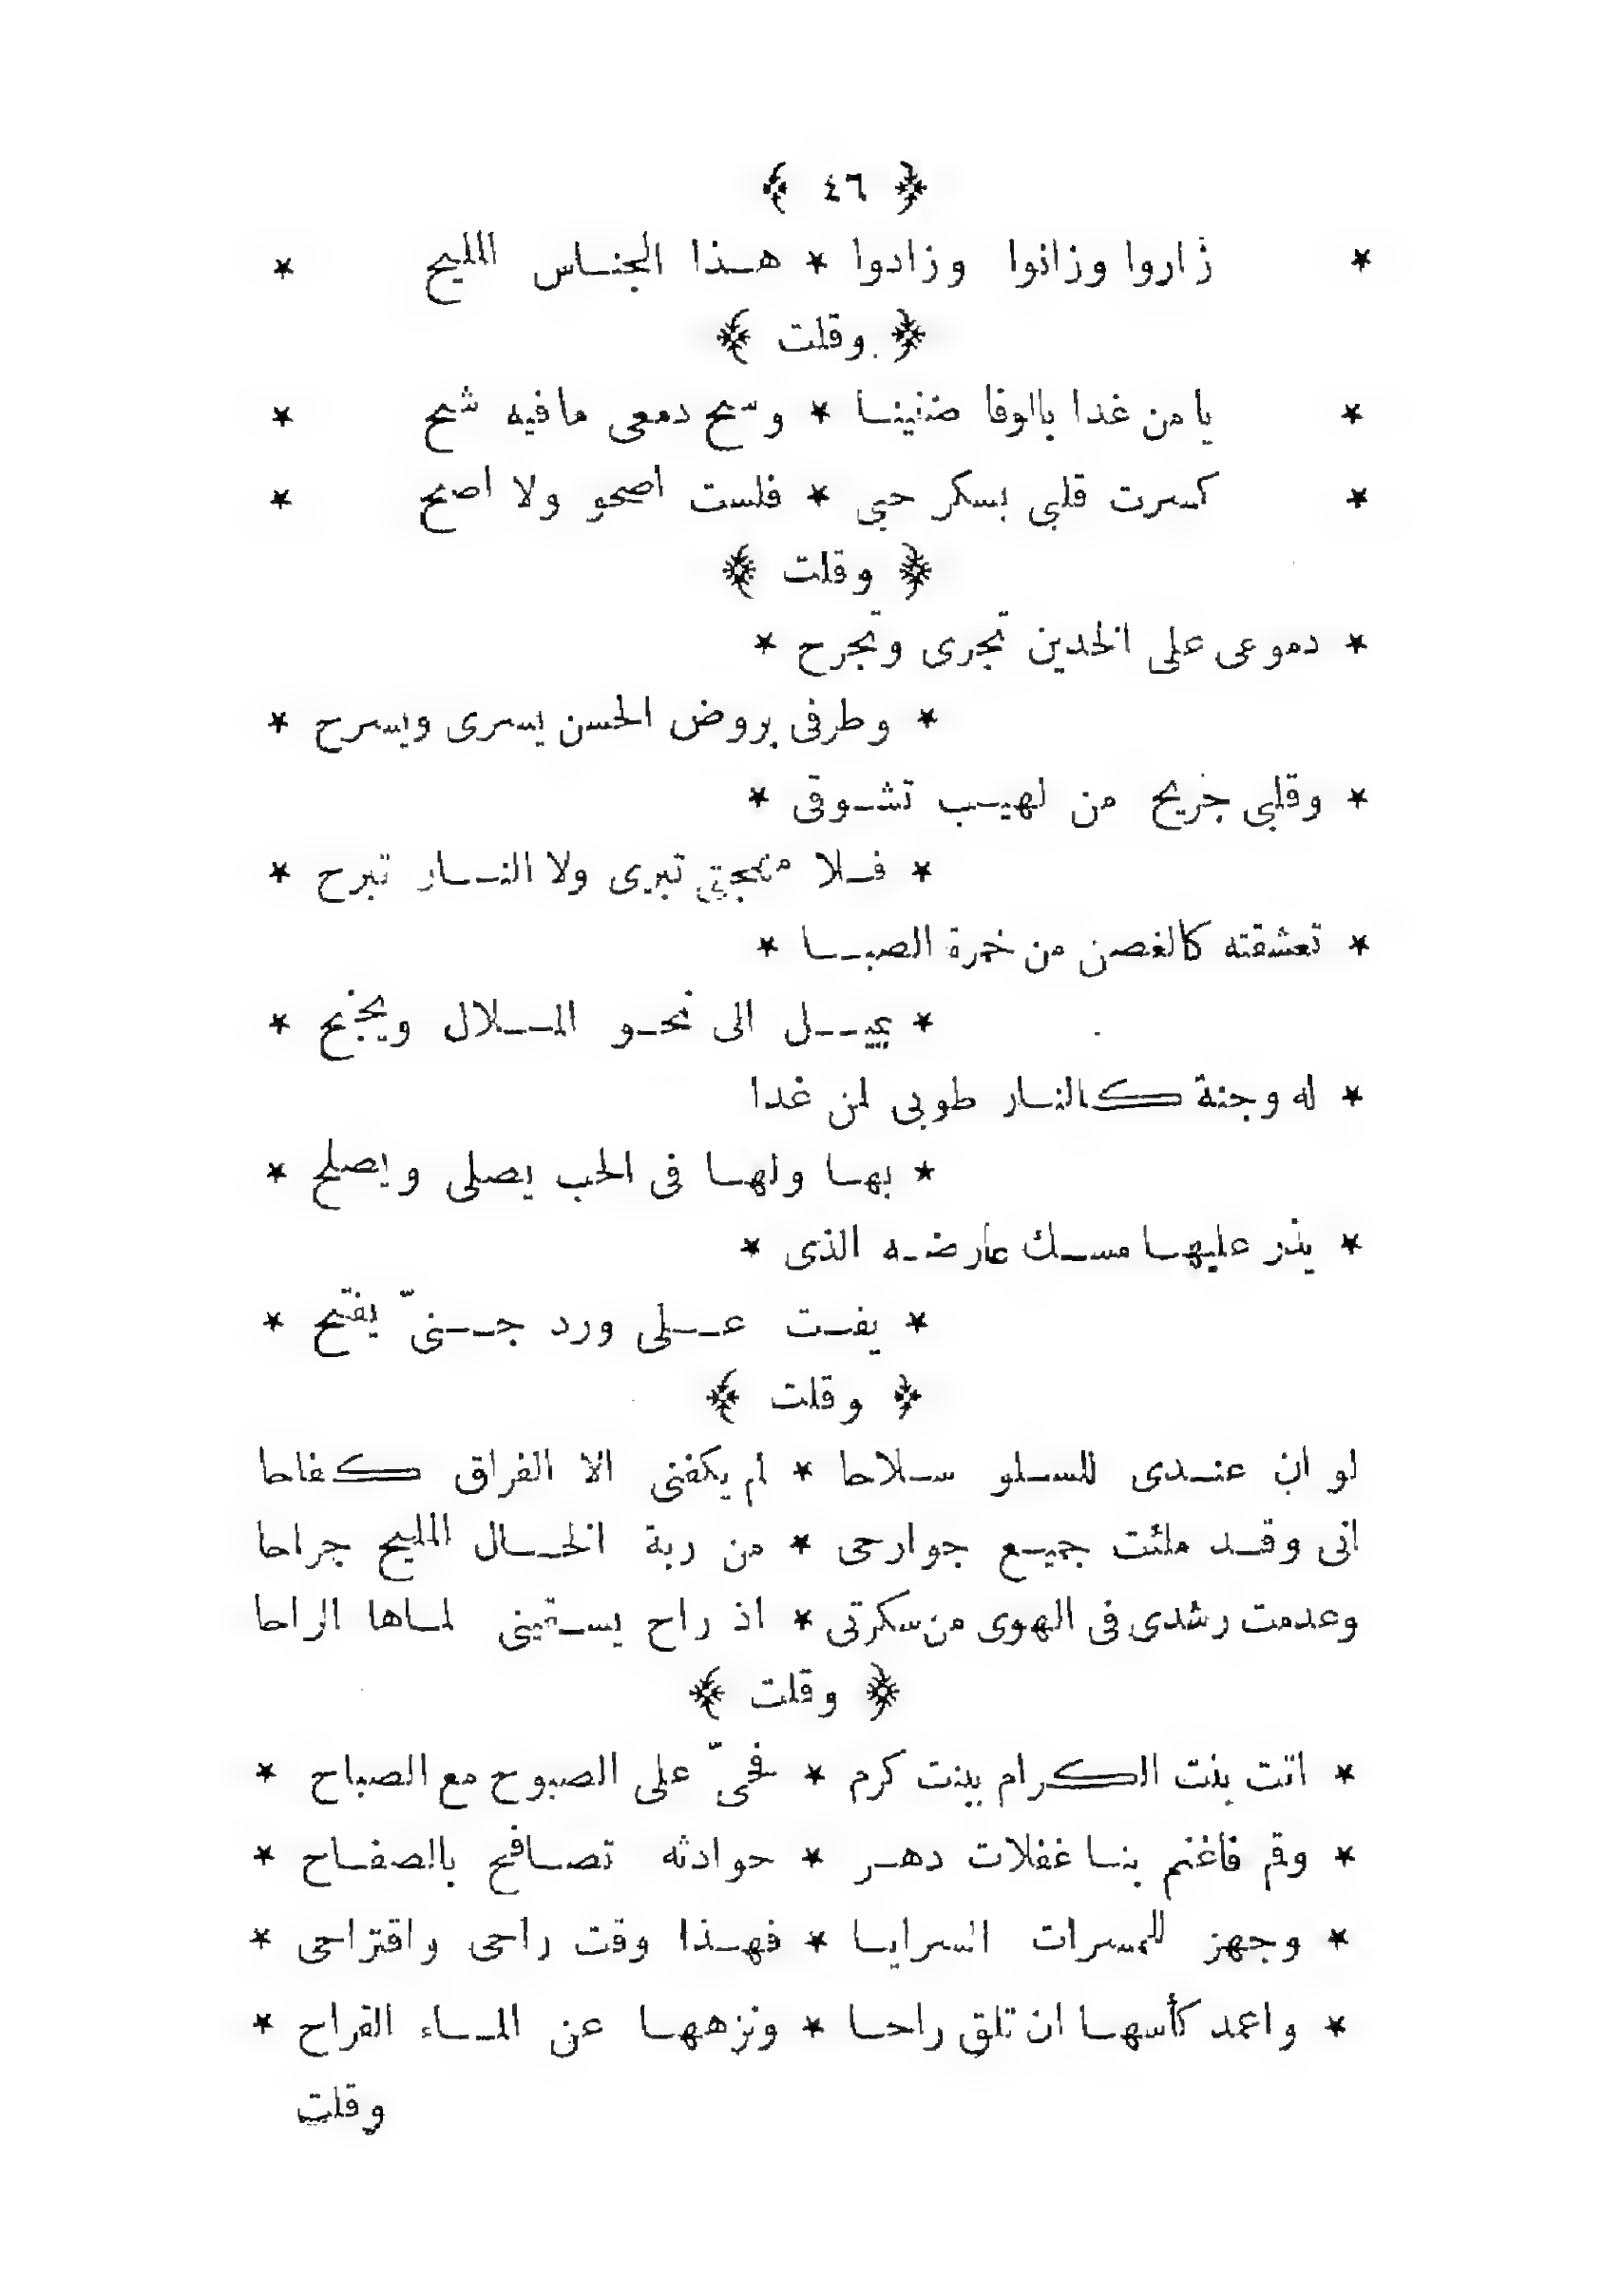 ﴿ ٤٦ ﴾
* زاروا وزانوا وزادوا * هذا الجناس المليح *
﴿ وقلت ﴾
* يامن غدا بالوفا ضنينا * وسح دمعى مافيه شح *
* كسرت قلبى بسكر حبى * فلست اصحو ولا اصح *
﴿ وقلت ﴾
* دموعى على الخدين تجرى وتجرح *
* وطرفى بروض الحسن يسرى ويسرح *
* وقلبى جريح من لهيب تشوقى *
* فلا مهجتى تبرى ولا النار تبرح *
* تعشقته كالغصن من خمرة الصبا *
* يميل الى نحو الملال ويجنح *
* له وجنة كالنار طوبى لمن غدا
* بها ولها فى الحب يصلى ويصلح *
* يذر عليها مسك عارضه الذى *
* يفت على ورد جنىّ يفتح *
﴿ وقلت ﴾
لو ان عندى للسلو سلاحا * لم يكفنى الا الفراق كفاحا
انى وقد ملئت جميع جوارحى * من ربة الخال المليح جراحا
وعدمت رشدى فى الهوى من سكرتى * اذ راح يسقينى لماها الراحا
﴿ وقلت ﴾
* اتت بنت الكرام ببنت كرم * فحىّ على الصبوح مع الصباح *
* وقم فاغنم بنا غفلات دهر * حوادثه تصافح بالصفاح *
* وجهز للمسرات السرايا * فهذا وقت راحى واقتراحى *
* واعمد كأسها ان تلق راحا * ونزهها عن الماء القراح *
وقلت